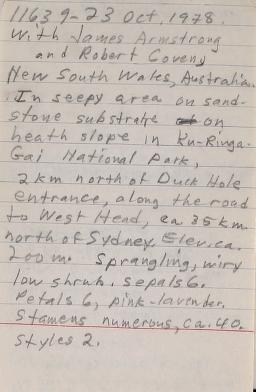 11639-23 Oct, 1978.
With James Armstrong
and Robert Coveny
New South Wales, Australia.
In seepy area on sand-
stone substrate on
heath slope in Ku-Ringa-
Gai National Park,
2 km north of Duck Hole
entrance, along the road
to West Head, ca 35 km
north of Sydney, Elev. ca.
200 m. Sprangling, wiry
low shrub. Sepals 6.
Petals 6, pink-lavender.
Stamens numerous, ca. 40.
Styles 2.